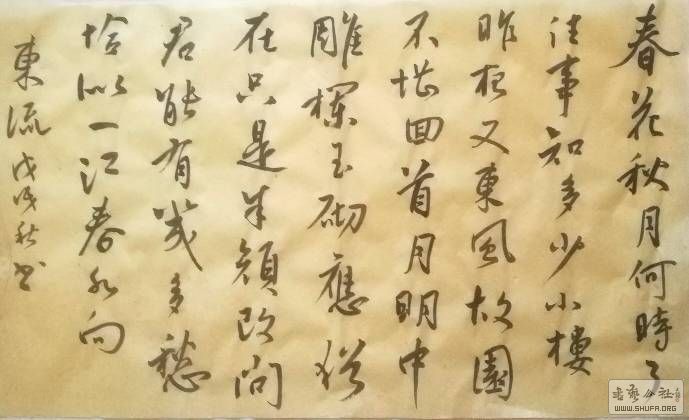 春花秋月何時了
往事知多少小樓
昨夜又東風故園
不堪回首月明中
雕欄玉砌應猶
在只是朱顏改問
君能有幾多愁
恰似一江春水向
東流 戊戌秋書
WWW.SHUFA.ORG